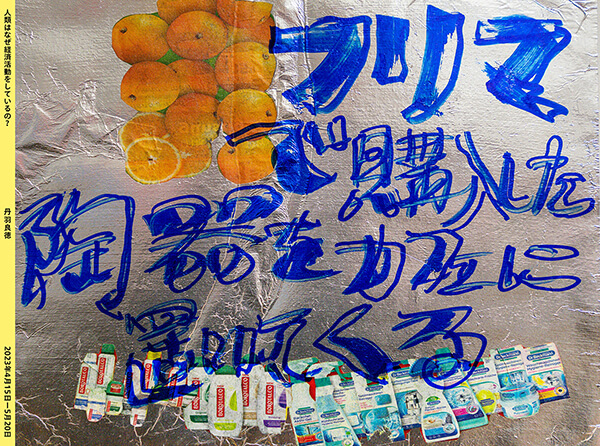 人類はなぜ経済活動をしているの?
丹羽良徳
2023年4月15日—5月20日
フリマ
で購入した
陶器をカフェに
置いてくる